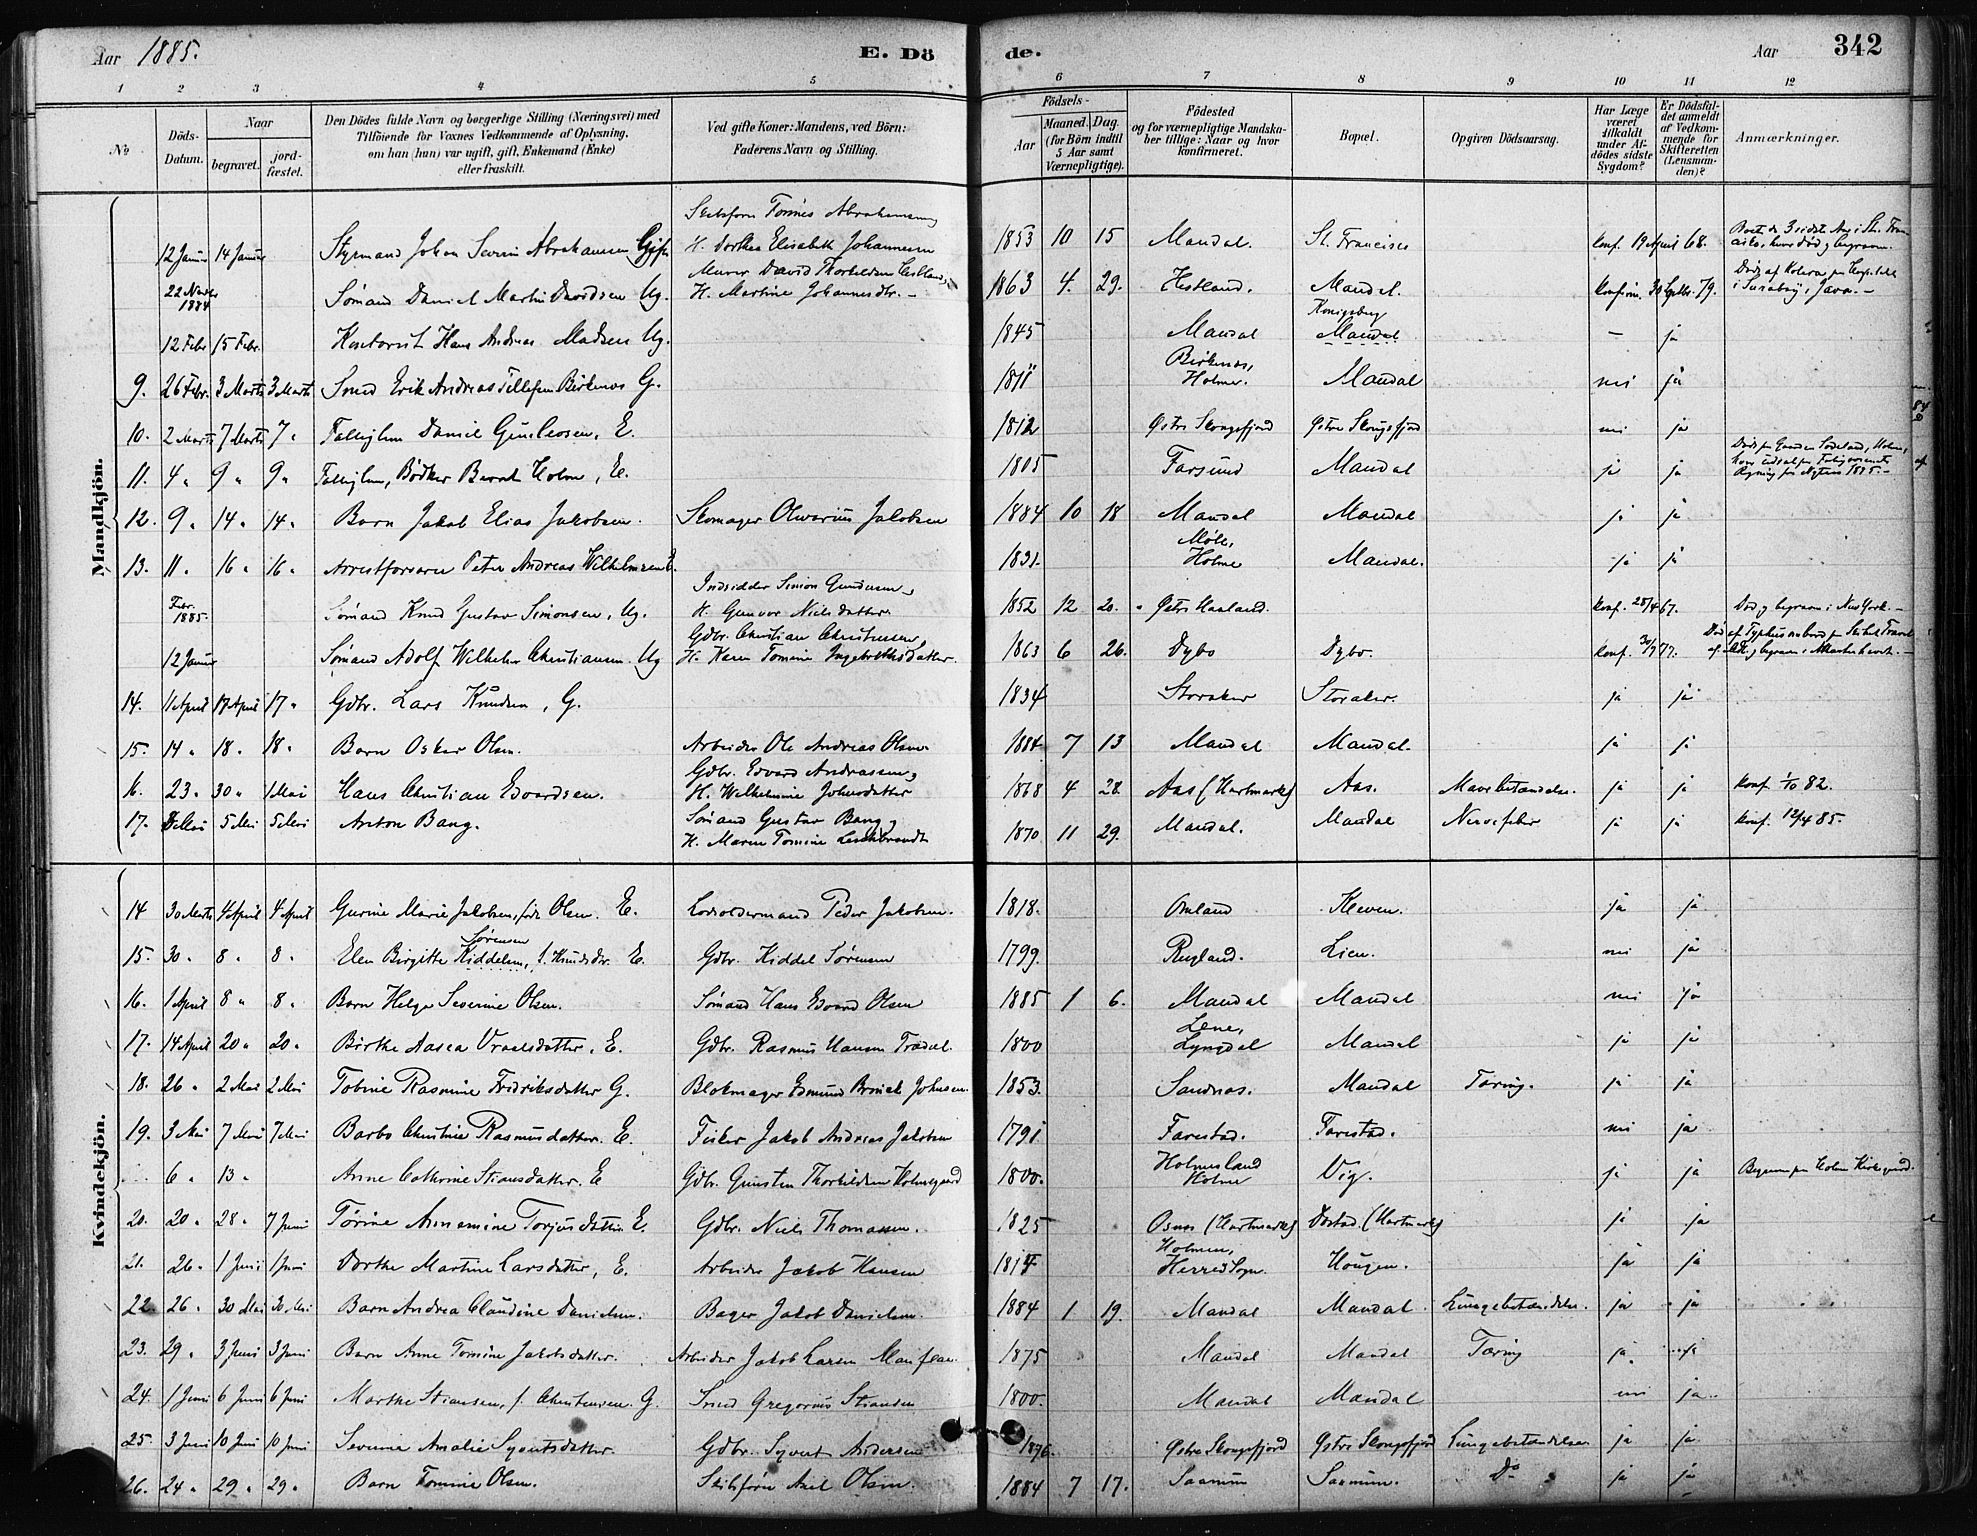 Aar 1885.
E. Dö
de.
Aar
342
1 2 3 4 5 6 7 8 9 10 11 12
No
Döds-Datum.
Naar
begravet.
jord-fæstet.
Den Dödes fulde Navn og borgerlige Stilling (Næringsvei) med
Tilföiende for Voxnes Vedkommende af Oplysning,
om han (hun) var ugift, gift, Enkemand (Enke)
eller fraskilt.
Ved gifte Koner: Mandens, ved Börn:
Faderens Navn og Stilling.
Födsels-
Aar
Maaned. Dag.
(for Börn indtil
5 Aar samt
Værnepligtige).
Födested
og for værnepligtige Mandska-
ber tillige: Naar og hvor
konfirmeret.
Bopæl.
Opgiven Dödsaarsag.
Har Læge
været
tilkaldt
under Af-
dödes sidste
Sygdom?
Er Dödsfal-
det anmeldt
af Vedkom-
mende for
Skifteretten
(Lensman-
den)?
Anmærkninger.
Mandkjön.
Skibsförer Tönnes Abrahamsen,
12 Januar 14 Januar Styrmand Johan Severin Abrahamsen Gift H. Dorthea Elisabeth Johannesen 1853 10 15 Mandal. St. Francisco konf. 19 April 68.
Murer David Thorkildsen Hestland,
22 Novbr 1884 Sömand Daniel Martin Davidsen Ug. H. Martine Johannesdtr. - 1863 4. 29. Hestland. Mandal. konfirm. 30 Septbr. 79. Död af Kolera paa Hospitalet i Surabay, Java. -
Königsberg
12 Febr 15 Febr. Kontorist Hans Andreas Madsen Ug. 1845 Mandal Mandal - ja
Birkenæs,
9. 26 Febr. 3 Marts 3 Marts Smed Erik Andreas Tellefsen Birkenæs G. 1811 Holme. Mandal nei ja
10. 2 Marts 7 Marts 7 " Fattiglem Daniel Gunleosen, E. 1812 Østre Skougsfjord Østre Skougsfjord nei ja
11. 4 " 9 " 9 " Fattiglem, Bödker Berent Holm, E. 1805 Farsund Mandal ja ja
12. 9 " 14 " 14 " Barn Jakob Elias Jakobsen. Skomager Olvarius Jakobsen 1884 10 18 Mandal Mandal ja ja
Möll,
13. 11 " 16 " 16 " Arrestforvarer Peter Andreas Wilhelmsen E. Holme Mandal. ja ja
Indsidder Simon Gundersen,
Febr. 1885. Sömand Knud Gustav Simonsen, Ug. H. Gunvor Nielsdatter 1852 12 20. Østre Haaland. konf. 28/4 67. Död og begraven i New York. -
Gdbr. Christian Christensen,
12 Januar Sömand Adolf Wilhelm Christiansen. Ug H. Karen Tomine Ingebrethsdatter. 1863 6 26. Dybo Dybo. konf. 30/9 77.
14. 11 April 17 April 17 " Gdbr. Lars Knudsen, G. 1834 Storaker Storaker. ja ja
15. 14 " 18 " 18 " Barn Oskar Olsen. Arbeider Ole Andreas Olsen 1884 7 13 Mandal Mandal. ja ja
Gdbr. Edvard Andreassen,
16. 23 " 30 " 1 Mai Hans Christian Edvardsen. H. Wilhelmine Johnsdatter 1868 4 28. Aas (Hartmark) Aas. Mavebetændelse. ja ja konf. 1/10 82.
Sömand Gustav Bang,
17. 5 Mai 5 Mai Anton Bang. H. Maren Tomine 1870 11 29. Mandal. Mandal Nervefeber ja ja konf. 12/4 85.
Kvindekjön.
14 30 Marts 4 April 4 April Gurine Marie Jakobsen, föd Olsen. E. Lodsoldermand Peder Jakobsen. 1818. Omland Kleven. ja ja
Sörensen
15. 30 " 8 " 8 " Elen Birgitte Kiddelsen, f. Knudsdtr. E. Gdbr. Kiddel Sörensen 1799. Rugland. Lien. nei ja
16. 1 April 8 " 8 " Barn Helga Severine Olsen. Sömand Hans Edvard Olsen 1885 1 6. Mandal Mandal nei ja
Lene,
17. 14 April 20 " 20 " Birthe Aasea Vraalsdatter, E. Gdbr. Rasmus Hansen Trædal. 1800 Lyngdal Mandal ja ja
18. 26 " 2 Mai 2 Mai Tobine Rasmine Fredriksdatter G. Blokmager Edmund Johnsen. 1853. Sandnæs. Mandal Tæring. ja ja
19. 3 Mai 7 Mai 7 Mai Barbo Christine Rasmusdatter. E. Fisker Jakob Andreas Jakobsen 1791 Farestad. Farestad. nei ja
6 " 13 " Anne Cathrine Stiansdatter. E Gdbr. Gunsten Thorkildsen Holmegaard 1800. Holmesland Holme Vig. ja ja Begraven paa Holme Kirkegaard.
20. 20 " 28 " 7 Juni Törine Annemine Torjusdatter. E. Gdbr. Niels Thomassen. 1825 Osnes (Hartmark) Døstad. (Hartmark) ja ja
Holmen,
21. 26 " 1 Juni 1 Juni Dorthe Martine Larsdatter, E. Arbeider Jakob Hansen 1814 Herred Sogn. Haugen. ja ja
22. 26 " 30 Mai 30 Mai Barn Andrea Claudine Danielsen. Bager Jakob Danielsen. 1884 1 19. Mandal Mandal. Lungebetændelse. ja ja
23. 29 " 3 Juni 3 Juni Barn Anne Tomine Jakobsdatter. Arbeider Jakob Larsen 1875 Mandal Mandal Tæring ja. ja
24. 1 Juni 6 Juni 6 Juni Marthe Stiansen, f. Christensen. G. Smed Gregorius Stiansen 1800. Mandal Mandal nei ja.
25. 3 Juni 10 Juni 10 Juni Severine Amalie Syvertsdatter. Gdbr. Syvert Andersen 1876. Østre Skougsfjord Østre Skougsfjord Lungebetændelse. ja ja.
26. 24 " 29 " 29 " Barn Tomine Olsen. Skibsförer Axel Olsen. 1884 7 17. Saanum Saanum. Do ja ja